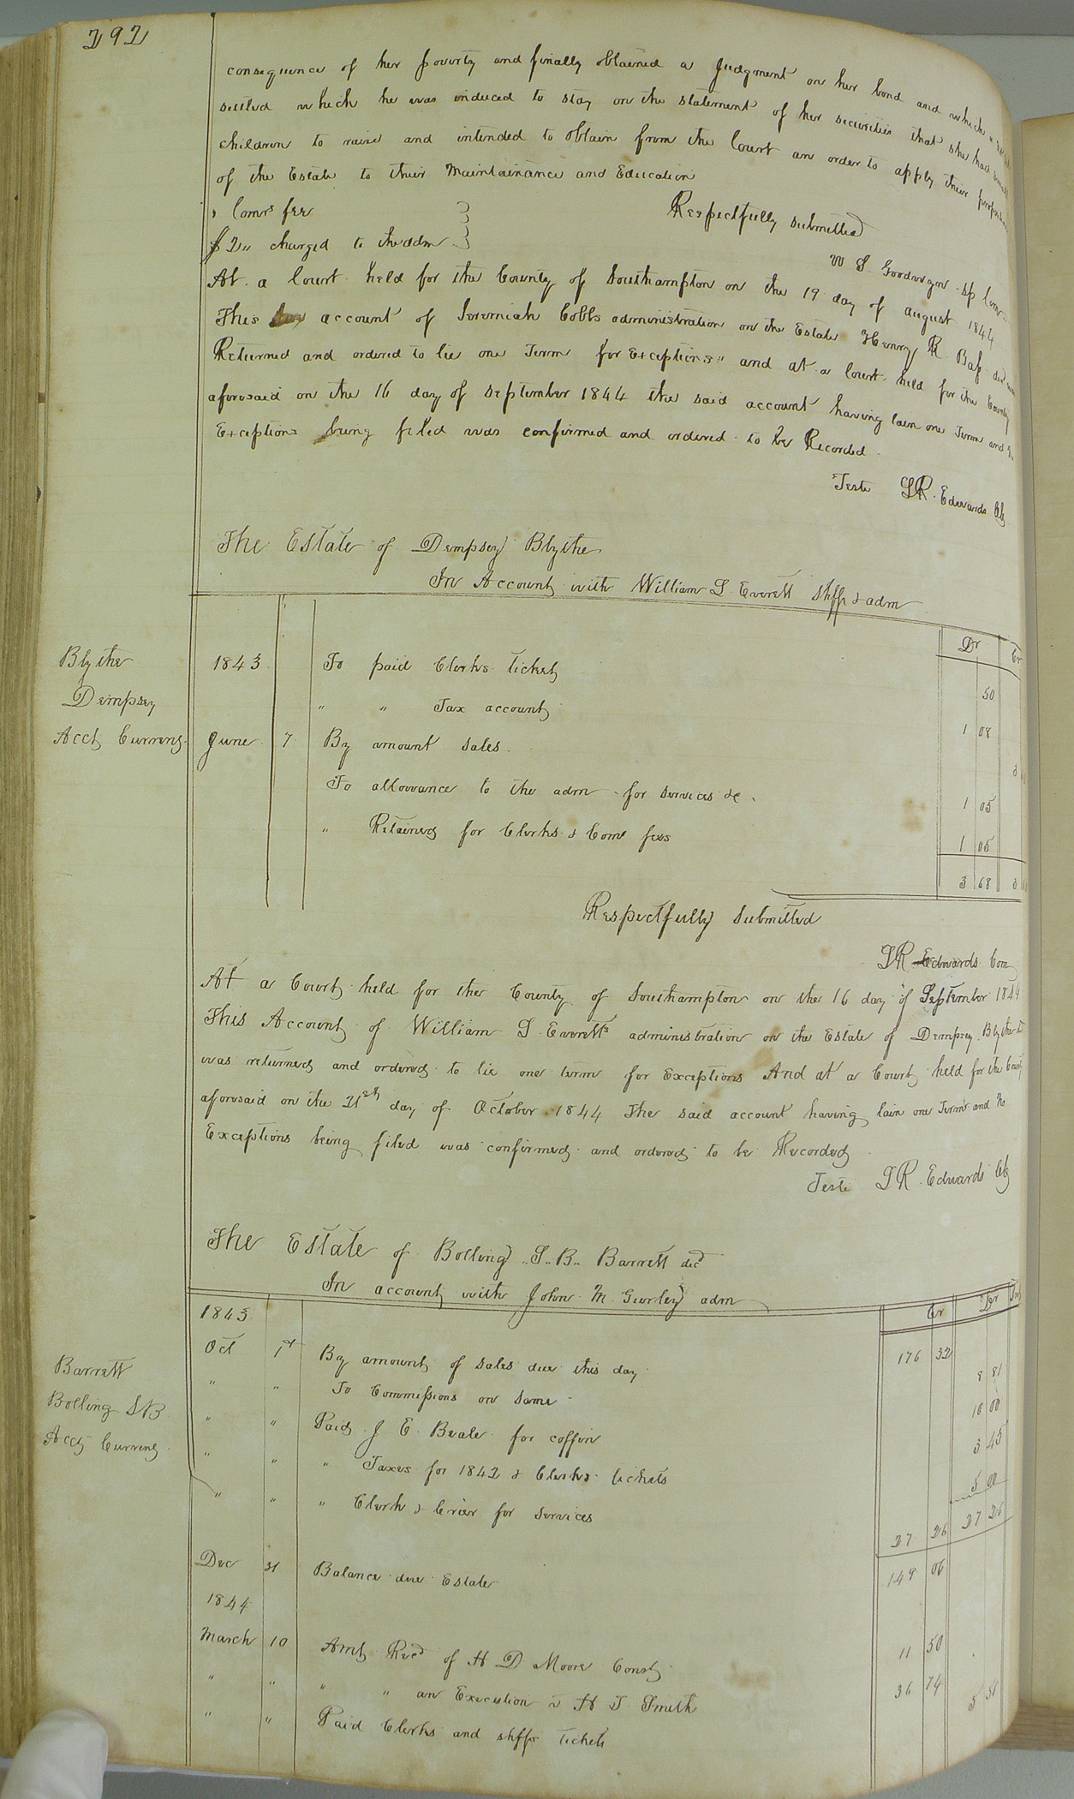 292
consequence of her poverty and finally obtained a Judgment on her bond and which
settled which he was induced to stay on the statement of her securities that she had small
children to raise and intended to obtain from the Court an order to apply their
of the Estate to their Maintainance and Education
Comrs fee
$2,, charged to the adm
Respectfully submitted
W S Goodwyn Sp Com
At a Court held for the County of Southampton on the 19 day of august 1844
This account of Jeremiah Cobbs administration on the Estate Henry R
Returned and ordered to lie one Term for Exceptions" and at a Court held for the County
aforesaid on the 16 day of September 1844 the said account having lain one Term and
Exceptions being filed was confirmed and ordered to be Recorded
Teste LR. Edwards Clk
The Estate of Dempsey Blythe
In Account with William S. Everett Shff & adm
Dr Cr
Blythe
Dempsey
Acct Current
1843 To paid Clerks ticket 50
" " Tax account 1 08
June 7 By amount sales
To allowance to the adm for services &c. 1 05
" Retained for Clerks & Comr fees 1 05
3 68
Respectfully Submitted
LR Edwards Com
At a Court held for the County of Southampton on the 16 day of September 1844
This Account of William S. Everetts administration on the Estate of Dempsey Blythe
was returned and ordered to lie one term for Exceptions And at a Court held for the County
aforesaid on the 21st day of October 1844 The said account having lain one Term and No
Exceptions being filed was confirmed and ordered to be Recorded
Teste LR. Edwards Clk
The Estate of Bolling S. B. Barrett decd
In account with John M. Gurley adm
Cr Dr
Barrett
Bolling S B
Acct Current
1843
Oct 1st By amount of sales due this day 176 32
" " To Commissions on same 8 81
" " Paid J E Beale for coffin 10 00
" " " Taxes for 1842 & Clerks tickets 3 45
" " " Clerk & Crier for services 5 00
27 26 27 26
Dec 31 Balance due Estate 149 06
1844
March 10 Amt Recd of H D Moore Const 11 50
" " " " an Execution vs H T Smith 36 74
" " Paid Clerks and shffs tickets